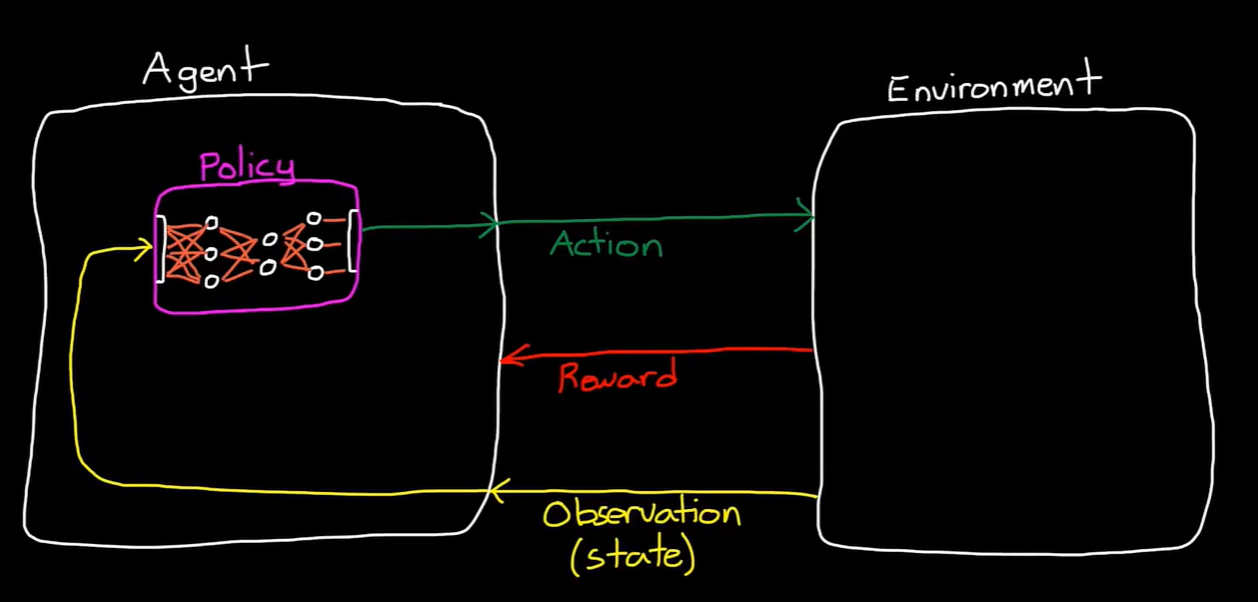 Agent
Environment
Policy
Action
Reward
Observation
(state)